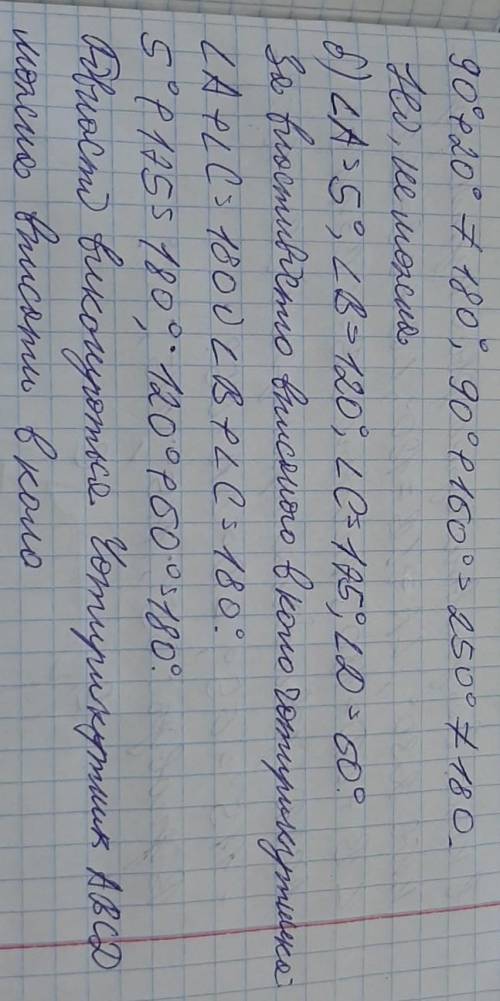 90°+20° ≠ 180°, 90°+160°=250° ≠ 180.
Ні, не можна
б) ∠A=5°, ∠B=120°, ∠C=175°, ∠D=60°.
За властивістю вписаного в коло чотирикутника
∠A+∠C=180° ∠B+∠C=180°.
5°+175=180°, 120°+60°=180°.
Рівності виконуються. Чотирикутник ABCD
можна вписати в коло